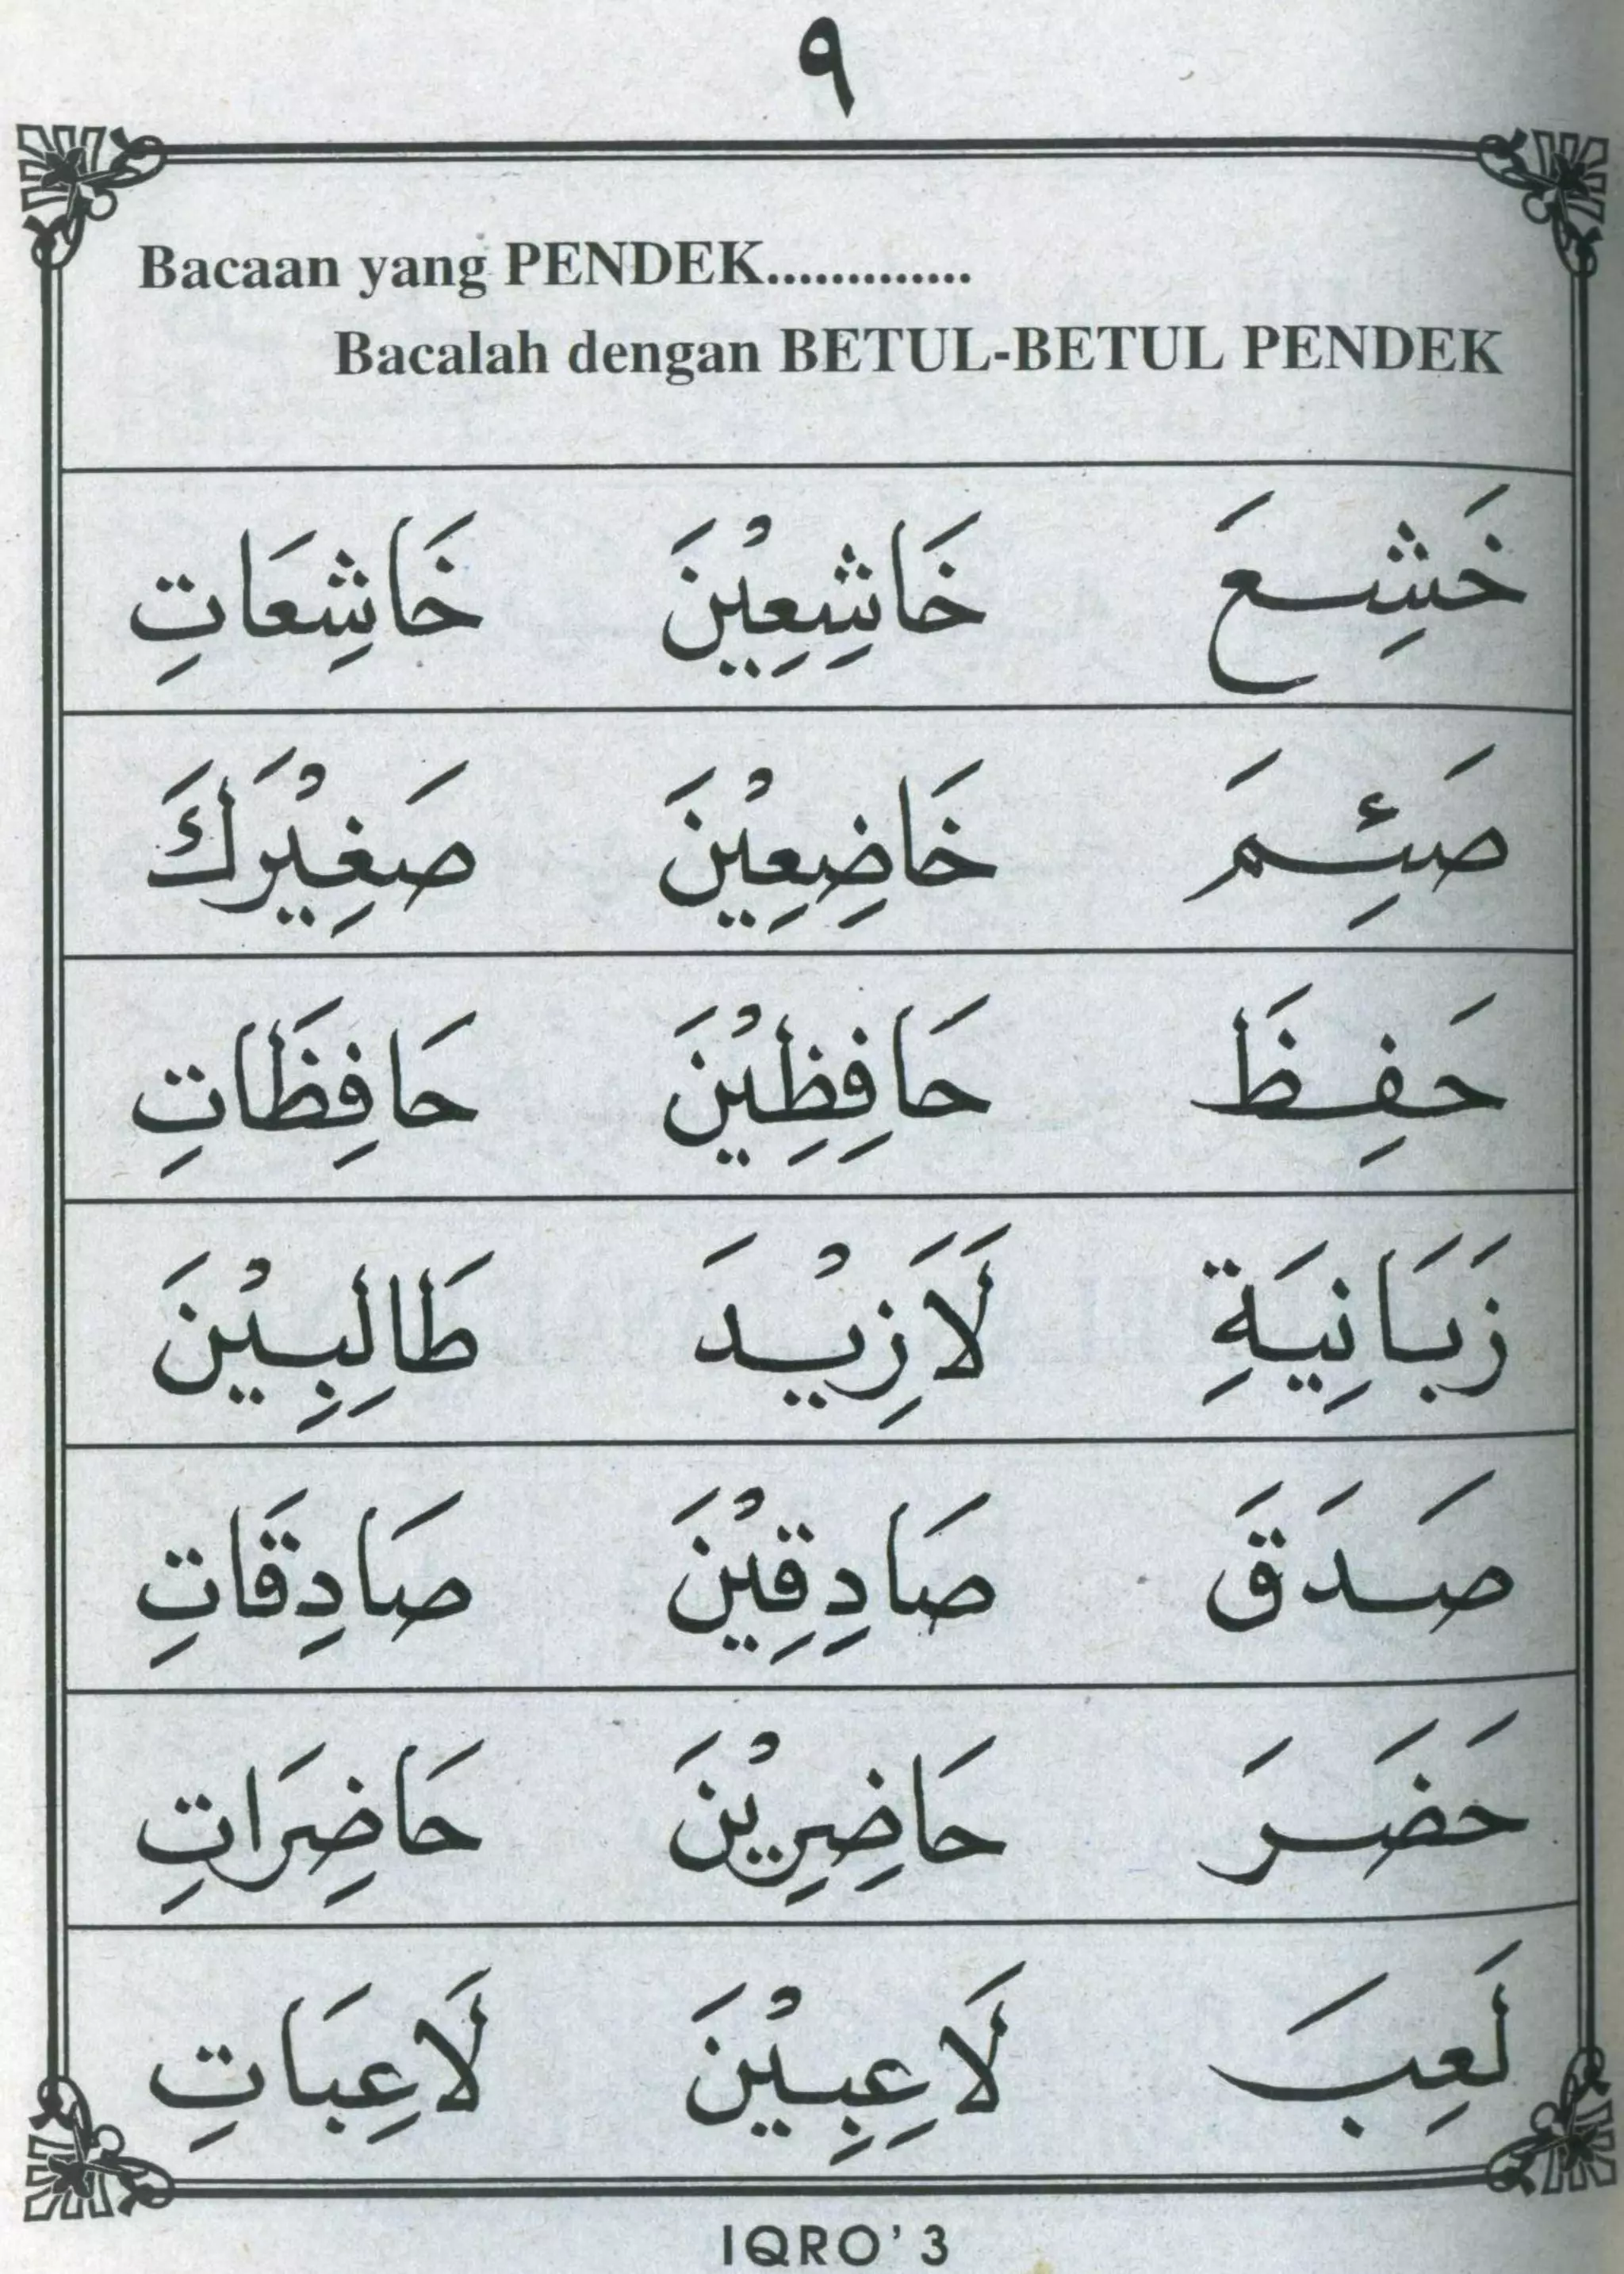 ٩
Bacaan yang PENDEK.............
Bacalah dengan BETUL-BETUL PENDEK
خَشِعَ خَاشِعِيْنَ خَاشِعَاتِ
صَئِمَ خَاضِعِيْنَ صَغِيْرَكَ
حَفِظَ حَافِظِيْنَ حَافِظَاتِ
زَبَانِيَةِ لَاَزِيْدَ طَالِبِيْنَ
صَدَقَ صَادِقِيْنَ صَادِقَاتِ
حَضَرَ حَاضِرِيْنَ حَاضِرَاتِ
لَعِبَ لَاعِبِيْنَ لَاعِبَاتِ
IQRO' 3